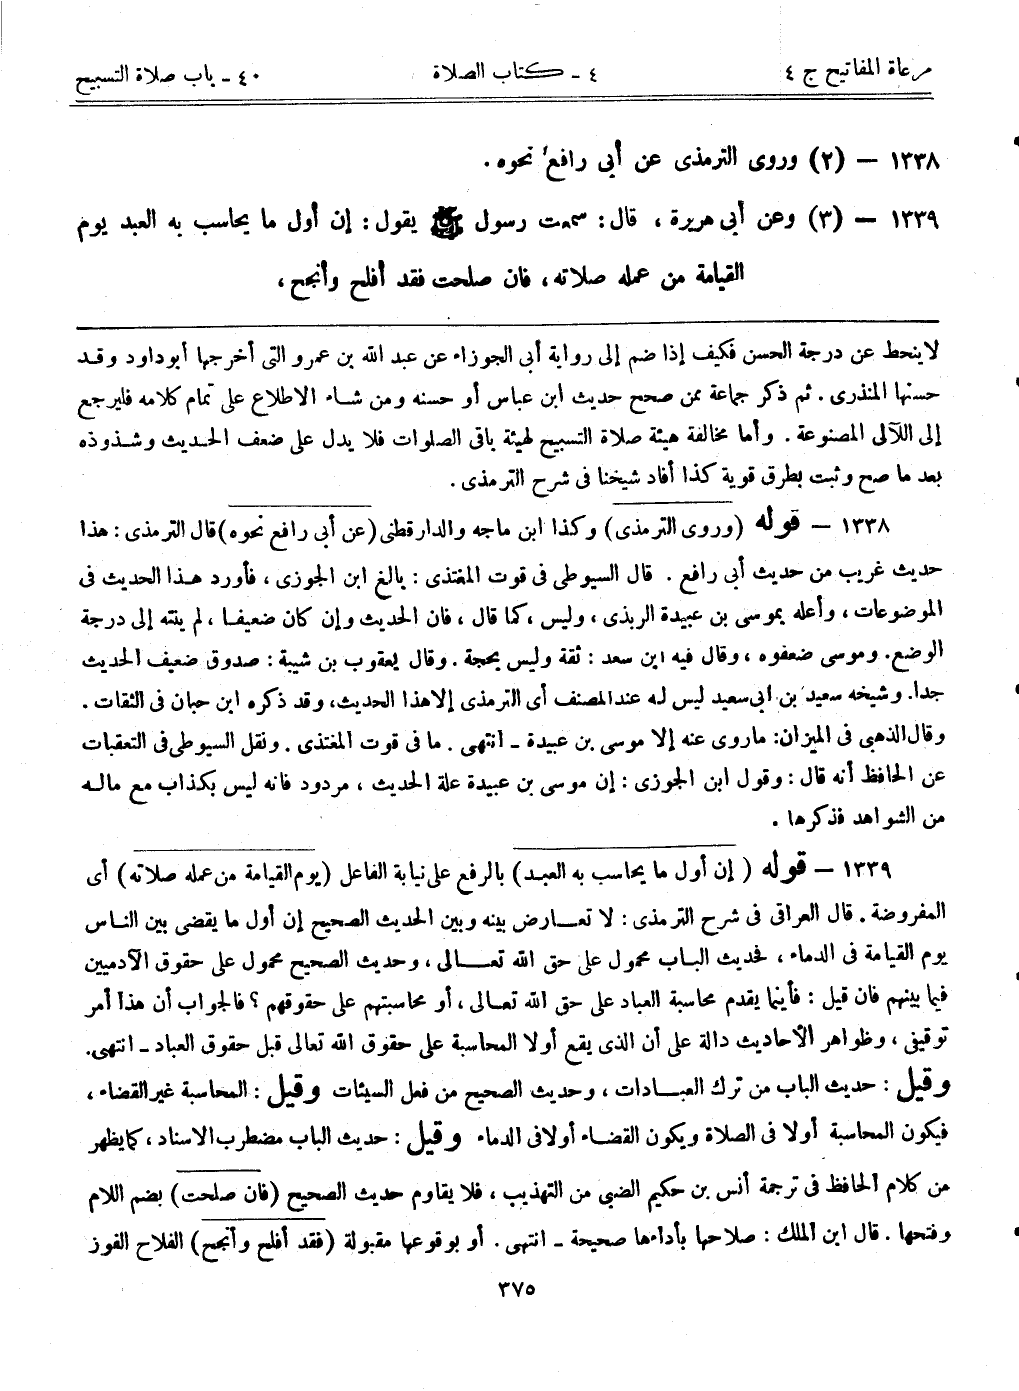 مرعاة المفاتيح ج ٤ ٤ ـ كتاب الصلاة ٤٠ ـ باب صلاة التسبيح
١٣٣٨ – (٢) وروى الترمذى عن أبى رافع نحوه .
١٣٣٩ – (٣) وعن أبى هريرة ، قال : سمعت رسول ﷺ يقول : إن أول ما يحاسب به العبد يوم
القيامة من عمله صلاته ، فان صلحت فقد أفلح وأنجح ،
لاينحط عن درجة الحسن فكيف إذا ضم إلى رواية أبى الجوزاء عن عبد الله بن عمرو التى أخرجها أبوداود وقد
حسنها المنذرى . ثم ذكر جماعة ممن صحح حديث ابن عباس أو حسنه ومن شاء الاطلاع على تمام كلامه فليرجع
إلى اللآلى المصنوعة . وأما مخالفة هيئة صلاة التسبيح لهيئة باقى الصلوات فلا يدل على ضعف الحديث وشذوذه
بعد ما صح وثبت بطرق قوية كذا أفاد شيخنا فى شرح الترمذى .
١٣٣٨ – قوله (وروى الترمذى) وكذا ابن ماجه والدارقطنى (عن أبى رافع نحوه) قال الترمذى : هذا
حديث غريب من حديث أبى رافع . قال السيوطى فى قوت المغتذى : بالغ ابن الجوزى ، فأورد هذا الحديث فى
الموضوعات ، وأعله بموسى بن عبيدة الربذى ، وليس ، كما قال ، فان الحديث وإن كان ضعيفا ، لم ينته إلى درجة
الوضع. وموسى ضعفوه ، وقال فيه ابن سعد : ثقة وليس بحجة . وقال يعقوب بن شيبة : صدوق ضعيف الحديث
جدا. وشيخه سعيد بن ابى سعيد ليس له عند المصنف أى الترمذى إلا هذا الحديث، وقد ذكره ابن حبان فى الثقات .
وقال الذهبى فى الميزان: ماروى عنه إلا موسى بن عبيدة ـ انتهى . ما فى قوت المغتذى . ونقل السيوطى فى التعقبات
عن الحافظ أنه قال : وقول ابن الجوزى : إن موسى بن عبيدة علة الحديث ، مردود فانه ليس بكذاب مع ماله
من الشواهد فذكرها .
١٣٣٩ – قوله ( إن أول ما يحاسب به العبد) بالرفع على نيابة الفاعل (يوم القيامة من عمله صلاته) أى
المفروضة . قال العراقى فى شرح الترمذى : لا تعارض بينه وبين الحديث الصحيح إن أول ما يقضى بين الناس
يوم القيامة فى الدماء ، فحديث الباب محمول على حق الله تعالى ، وحديث الصحيح محمول على حقوق الآدميين
فيما بينهم فان قيل : فأيهما يقدم محاسبة العباد على حق الله تعالى ، أو محاسبتهم على حقوقهم ؟ فالجواب أن هذا أمر
توقيفى ، وظواهر الأحاديث دالة على أن الذى يقع أولا المحاسبة على حقوق الله تعالى قبل حقوق العباد ـ انتهى.
وقيل : حديث الباب من ترك العبادات ، وحديث الصحيح من فعل السيئات وقيل : المحاسبة غير القضاء ،
فيكون المحاسبة أولا فى الصلاة ويكون القضاء أولا فى الدماء وقيل : حديث الباب مضطرب الاسناد ، كما يظهر
من كلام الحافظ فى ترجمة أنس بن حكيم الضبى من التهذيب ، فلا يقاوم حديث الصحيح (فان صلحت) بضم اللام
وفتحها . قال ابن الملك : صلاحها بأداءها صحيحة ـ انتهى . أو بوقوعها مقبولة (فقد أفلح وأنجح) الفلاح الفوز
٣٧٥